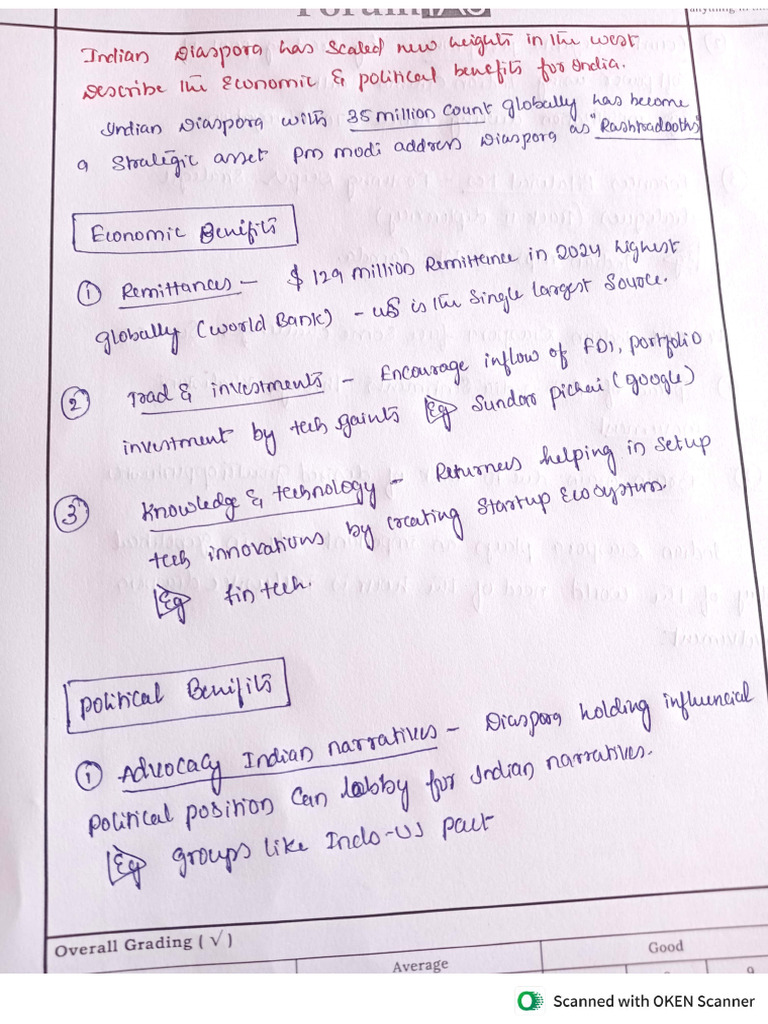 Forum IAS
anything in
Indian Diaspora has scaled new heights in the west
Describe the Economic & political benefits for India.
Indian Diaspora with 35 million count globally has become
a Strategic asset Pm modi address Diaspora as "Rashtradooths"
Economic Benifits
① Remittances - $ 129 million Remittance in 2024 highest
globally (World Bank) - US is the single largest source.
② Trad & investments - Encourage inflow of FDI, portfolio
investment by tech gaints Eg Sundar pichai (google)
③ Knowledg & technology - Returnees helping in setup
tech innovations by creating Startup Ecosystems.
Eg fintech.
Political Benifits
① Advocacy Indian narratives - Diaspora holding influencial
political position can lobby for Indian narratives.
Eg groups like Indo-US pact
Overall Grading (√)
Average
Good
9
Scanned with OKEN Scanner